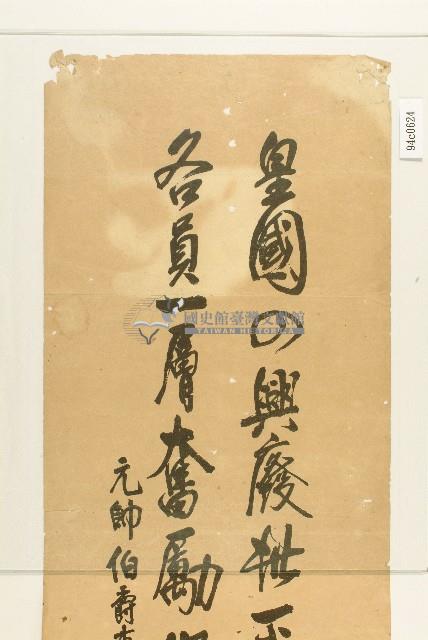 皇國之興廢

各員一層奮勵
元帥伯爵
國史館臺灣文獻館
TAIWAN HISTORICA
94c0624